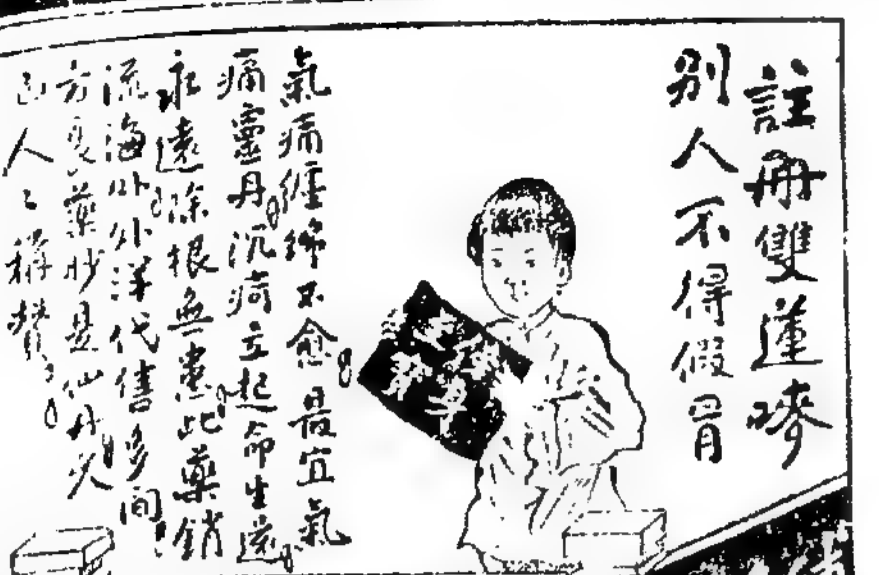 註冊雙蓮嘜
別人不得假冒
氣痛纏綿不愈最宜氣
痛靈丹沉疴立起命生還
永遠除根無患此藥銷
流海外外洋代售多間
方良藥妙是仙丹火
人人稱贊